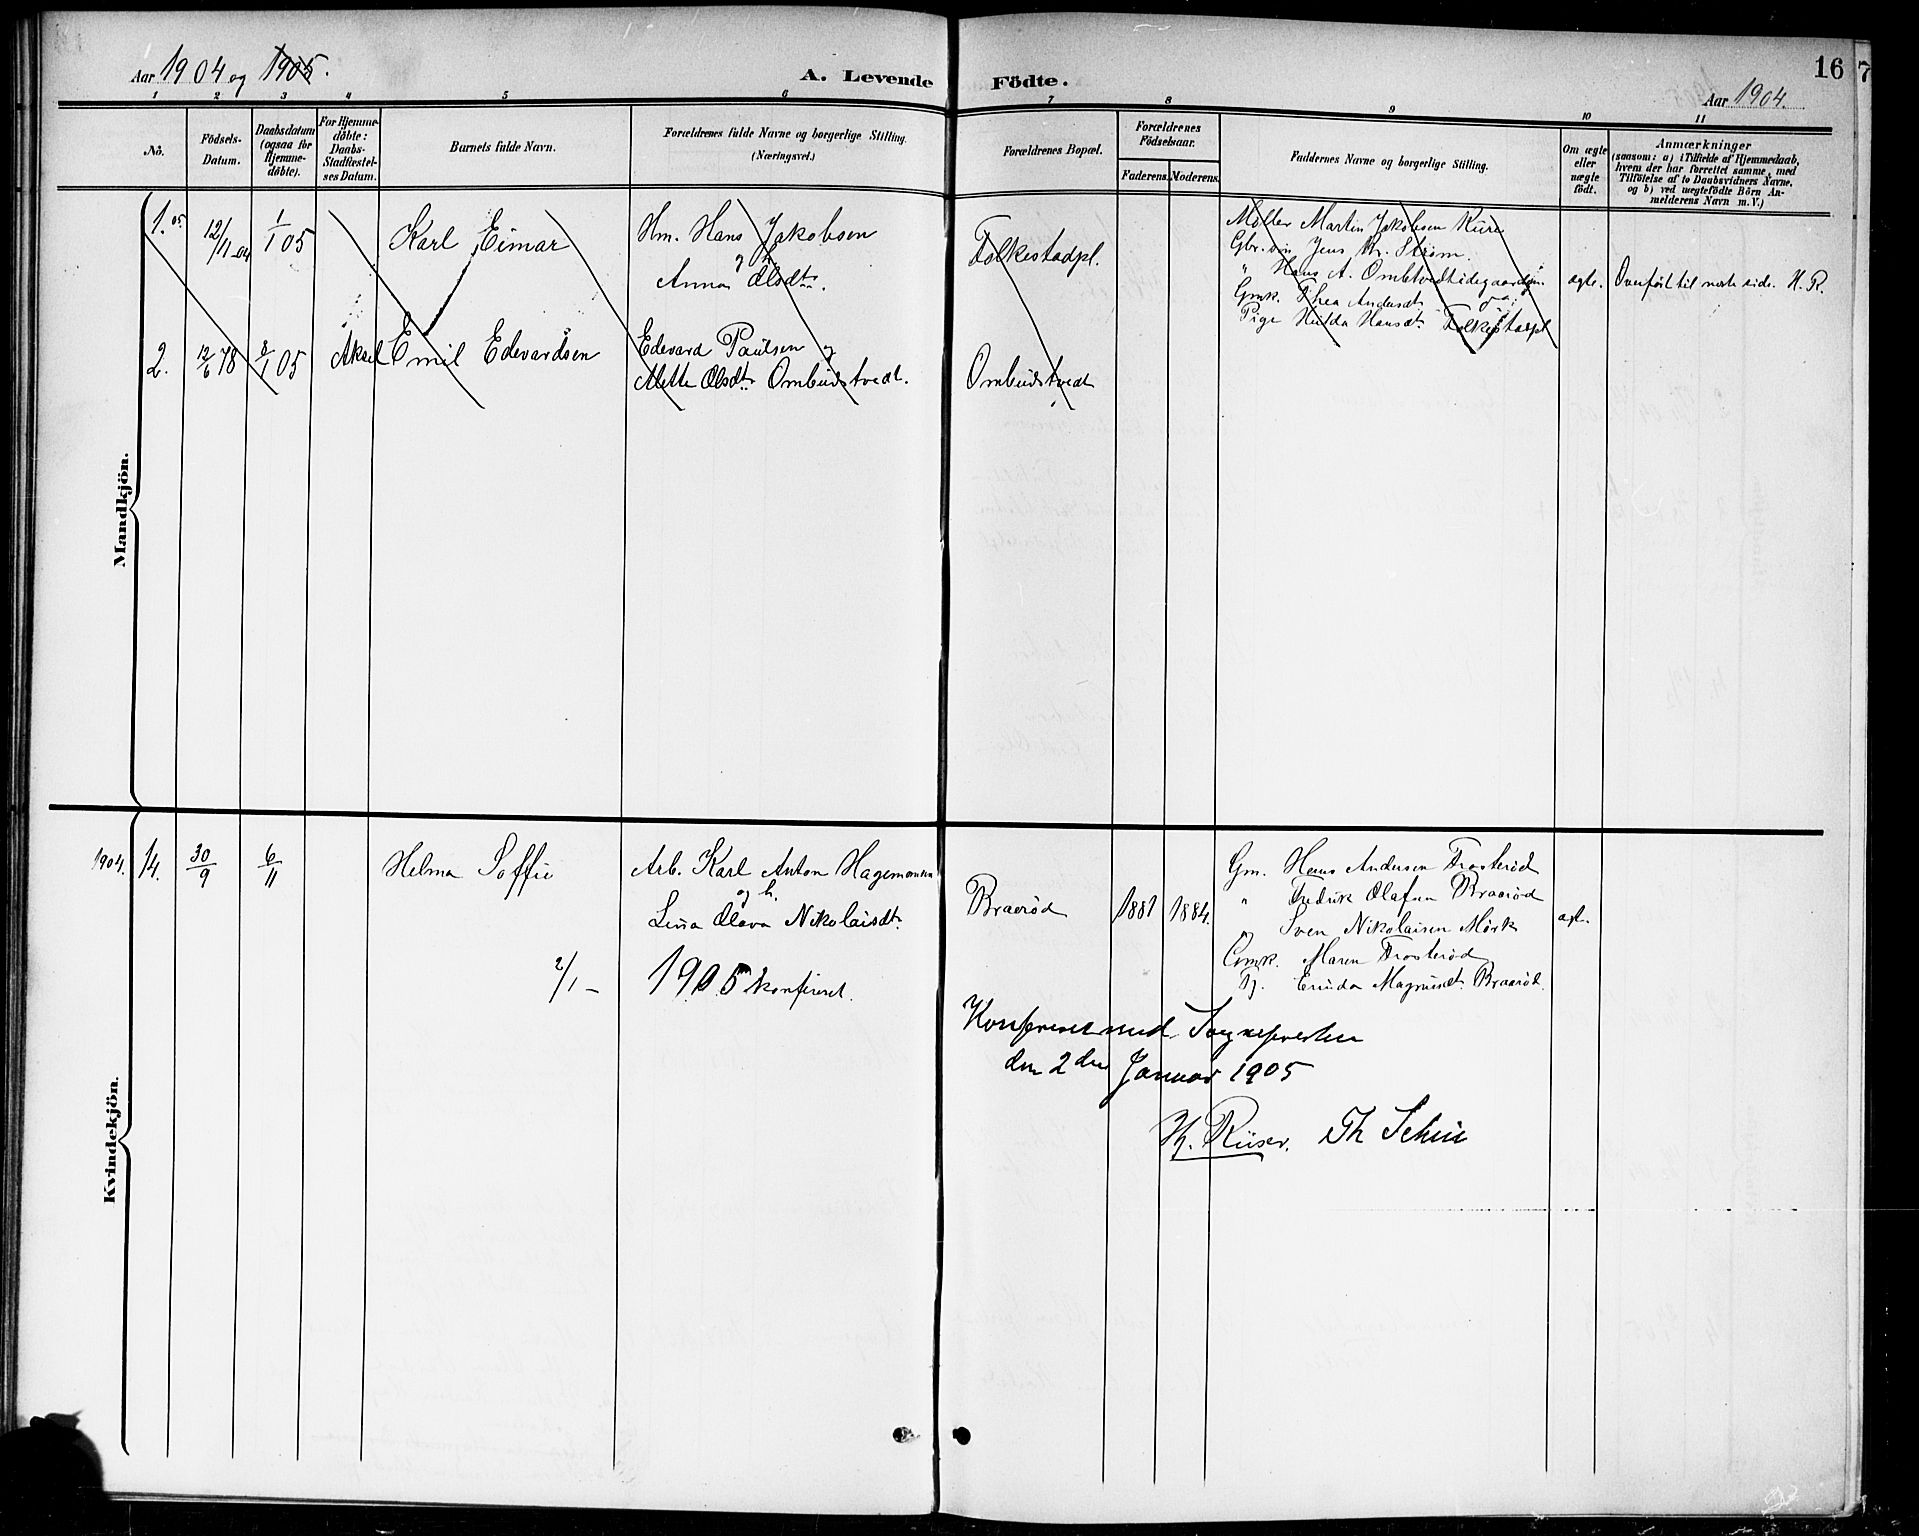 Aar 1904 og 1905.
A. Levende Födte.
16
7
Aar 1904.
1 2 3 4 5 6 7 8 9 10 11
No.
Födsels-
Datum.
Daabsdatum
(ogsaa for
Hjemme-
döbte).
For Hjemme-
döbte:
Daabs-
Stadfæstel-
ses Datum.
Barnets fulde Navn.
Forældrenes fulde Navne og borgerlige Stilling.
(Næringsvei.)
Forældrenes Bopæl.
Forældrenes
Födselsaar.
Faderens. Moderens.
Faddernes Navne og borgerlige Stilling.
Om ægte
eller
uægte
födt.
Anmærkninger
(saasom: a) i Tilfælde af Hjemmedaab,
hvem der har forrettet samme, med
Tilföielse af to Daabsvidners Navne,
og b) ved uægtefödte Börn An-
melderens Navn m. V.)
Mandkjön.
1. 05
12/11 04
1/1 05
Karl Eimar
Hm. Hans Jakobsen
og h.
Anna Olsdtr.
Folkestadpl.
Møller Martin Jakobsen Kure
Gbr. Jens Kr. Strøm.
" Hans A.
Gmk. Thea Andersdt.
Pige Hulda Hansdt. Folkestadpl
ægte.
Overført til næste side. H. R.
2.
12/6 78
2/1 05
Aksel Emil Edevardsen
Edevard Paulsen og
Mette Olsdtr. Ombudstvedt.
Ombudstvedt
Kvindekjön.
1904.
14.
30/9
6/11
Helma Soffie
Arb. Karl Anton Hagemansen
og h.
Lina Olava Nikolaisdt.
Braarød
1881
1884.
Gm. Hans Andersen Trosterød
" Fredrik Olafsen Braarød
" Sven Nikolaisen Mørk
Gmk. Maren Trosterød
Pg. Magnusdt. Braarød.
ægt.
2/1 – 1905 konfereret.
Konfereret med Sognepresten
den 2den Januar 1905
H. Riiser. Th Schie